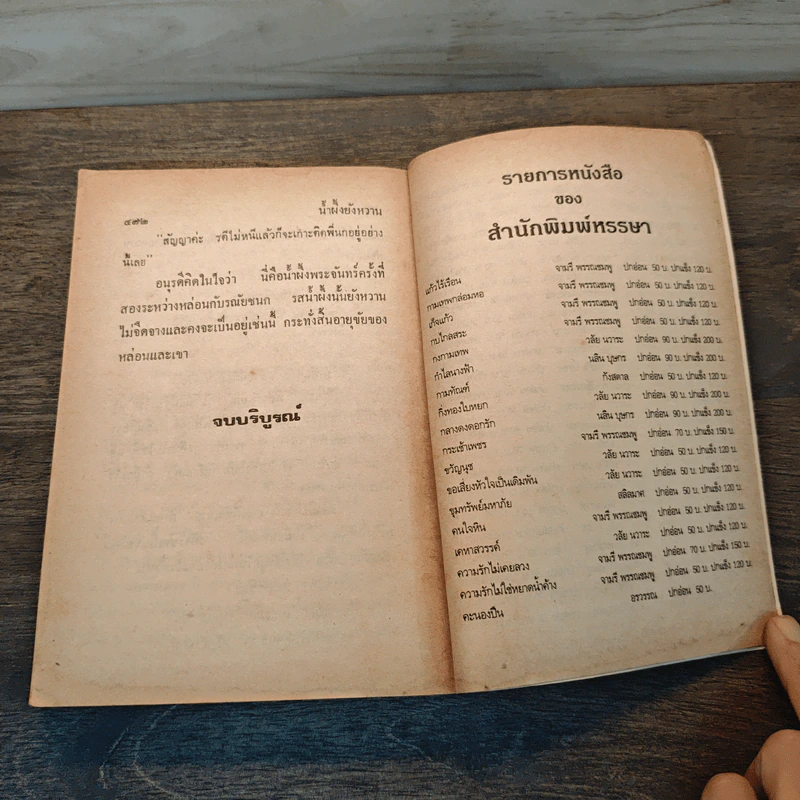 ๔๗๒
น้ำผึ้งยังหวาน
"สัญญาค่ะ รตีไม่หนีแล้วก็จะเกาะติดพี่นกอยู่อย่าง
นี้เลย"
อนุรตีคิดในใจว่า นี่คือน้ำผึ้งพระจันทร์ครั้งที่
สองระหว่างหล่อนกับรณัยชนก รสน้ำผึ้งนั้นยังหวาน
ไม่จืดจางและคงจะเป็นอยู่เช่นนี้ กระทั่งสิ้นอายุขัยของ
หล่อนและเขา
จบบริบูรณ์
รายการหนังสือ
ของ
สำนักพิมพ์หรรษา
แก้วไร้เรือน จามรี พรรณชมพู ปกอ่อน 50 บ. ปกแข็ง 120 บ.
กามเทพกล่อมหอ จามรี พรรณชมพู ปกอ่อน 50 บ. ปกแข็ง 120 บ.
เก็จแก้ว จามรี พรรณชมพู ปกอ่อน 50 บ. ปกแข็ง 120 บ.
กบไกลสระ จามรี พรรณชมพู ปกอ่อน 50 บ. ปกแข็ง 120 บ.
กงกามเทพ วลัย นวาระ ปกอ่อน 90 บ. ปกแข็ง 200 บ.
กำไลนางฟ้า นลิน บุษกร ปกอ่อน 90 บ. ปกแข็ง 200 บ.
กามทัณฑ์ กังสดาล ปกอ่อน 50 บ. ปกแข็ง 120 บ.
กิ่งทองใบหยก วลัย นวาระ ปกอ่อน 90 บ. ปกแข็ง 200 บ.
กลางดงดอกรัก นลิน บุษกร ปกอ่อน 90 บ. ปกแข็ง 200 บ.
กระเช้าเพชร จามรี พรรณชมพู ปกอ่อน 70 บ. ปกแข็ง 150 บ.
ขวัญนุช วลัย นวาระ ปกอ่อน 50 บ. ปกแข็ง 120 บ.
ขอเสี่ยงหัวใจเป็นเดิมพัน วลัย นวาระ ปกอ่อน 50 บ. ปกแข็ง 120 บ.
ขุมทรัพย์มหาภัย สลิลมาศ ปกอ่อน 50 บ. ปกแข็ง 120 บ.
คนใจหิน จามรี พรรณชมพู ปกอ่อน 50 บ. ปกแข็ง 120 บ.
เคหาสวรรค์ วลัย นวาระ ปกอ่อน 50 บ. ปกแข็ง 120 บ.
ความรักไม่เคยลวง จามรี พรรณชมพู ปกอ่อน 70 บ. ปกแข็ง 150 บ.
ความรักไม่ใช่หยาดน้ำค้าง จามรี พรรณชมพู ปกอ่อน 50 บ. ปกแข็ง 120 บ.
คะนองปืน อรวรรณ ปกอ่อน 50 บ.